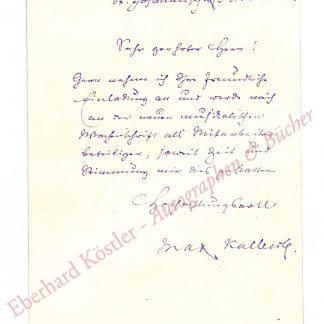 Sehr geehrter Herr!
Gern nehm ich Ihre freundliche
Einladung an und werde mich
an der neuen musikalischen
Wochenschrift als Mitarbeiter
beteiligen, soweit Zeit und
Stimmung mir dies
Hochachtungsvoll
Max Kalbeck.
Eberhard Köstler - Autographen & Bücher